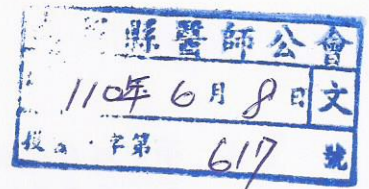 縣醫師公會
110年6月8日文
字第617號